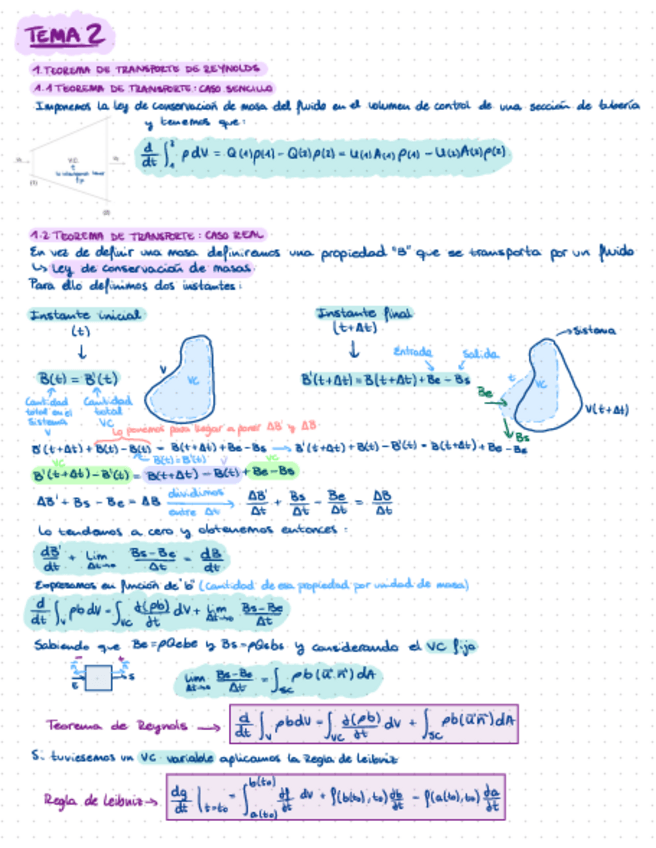 TEMA 2
1. TEOREMA DE TRANSPORTE DE REYNOLDS
1.1 TEOREMA DE TRANSPORTE: CASO SENCILLO
Imponemos la ley de conservación de masa del fluido en el volumen de control de una sección de tubería
y tenemos que:
d/dt ∫₁² ρ dV = Q(1)ρ(1) - Q(2)ρ(2) = U(1)A(1)ρ(1) - U(2)A(2)ρ(2)
V.C.
(1)
(2)
1.2 TEOREMA DE TRANSPORTE: CASO REAL
En vez de definir una masa definiramos una propiedad "B" que se transporta por un fluido
↳ Ley de conservación de masas
Para ello definimos dos instantes:
Instante inicial
(t)
↓
B(t) = B'(t)
Cantidad total en el Sistema V
Cantidad total VC
V
VC
Instante final
(t+Δt)
↓
Entrada
Salida
B'(t+Δt) = B(t+Δt) + Be - Bs
→ Sistema
t
VC
Be
Bs
V(t+Δt)
Lo ponemos para llegar a poner ΔB' y ΔB
B'(t+Δt) + B(t) - B(t) = B(t+Δt) + Be - Bs → B'(t+Δt) + B(t) - B'(t) = B(t+Δt) + Be - Bs
B(t) = B'(t)
VC
V
VC
B'(t+Δt) - B'(t) = B(t+Δt) - B(t) + Be - Bs
ΔB' + Bs - Be = ΔB dividimos entre Δt → ΔB'/Δt + Bs/Δt - Be/Δt = ΔB/Δt
Lo tendamos a cero y obtenemos entonces:
dB'/dt + Lim Δt→0 Bs-Be/Δt = dB/dt
Expresamos en función de "b" (cantidad de esa propiedad por unidad de masa)
d/dt ∫v ρb dV = ∫VC ∂(ρb)/∂t dV + lim Δt→0 Bs-Be/Δt
Sabiendo que Be=ρQebe y Bs=ρQsbs y considerando el VC fijo
- +
E
S
lim Δt→0 Bs-Be/Δt = ∫SC ρb(ū·n̄) dA
Teorema de Reynols → d/dt ∫v ρb dV = ∫VC ∂(ρb)/∂t dV + ∫SC ρb(ū n̄) dA
Si tuviesemos un VC variable aplicamos la Regla de leibniz
Regla de leibniz → dg/dt |t=t₀ = ∫a(t₀)^b(t₀) ∂f/∂t dV + f(b(t₀),t₀) db/dt - f(a(t₀),t₀) da/dt